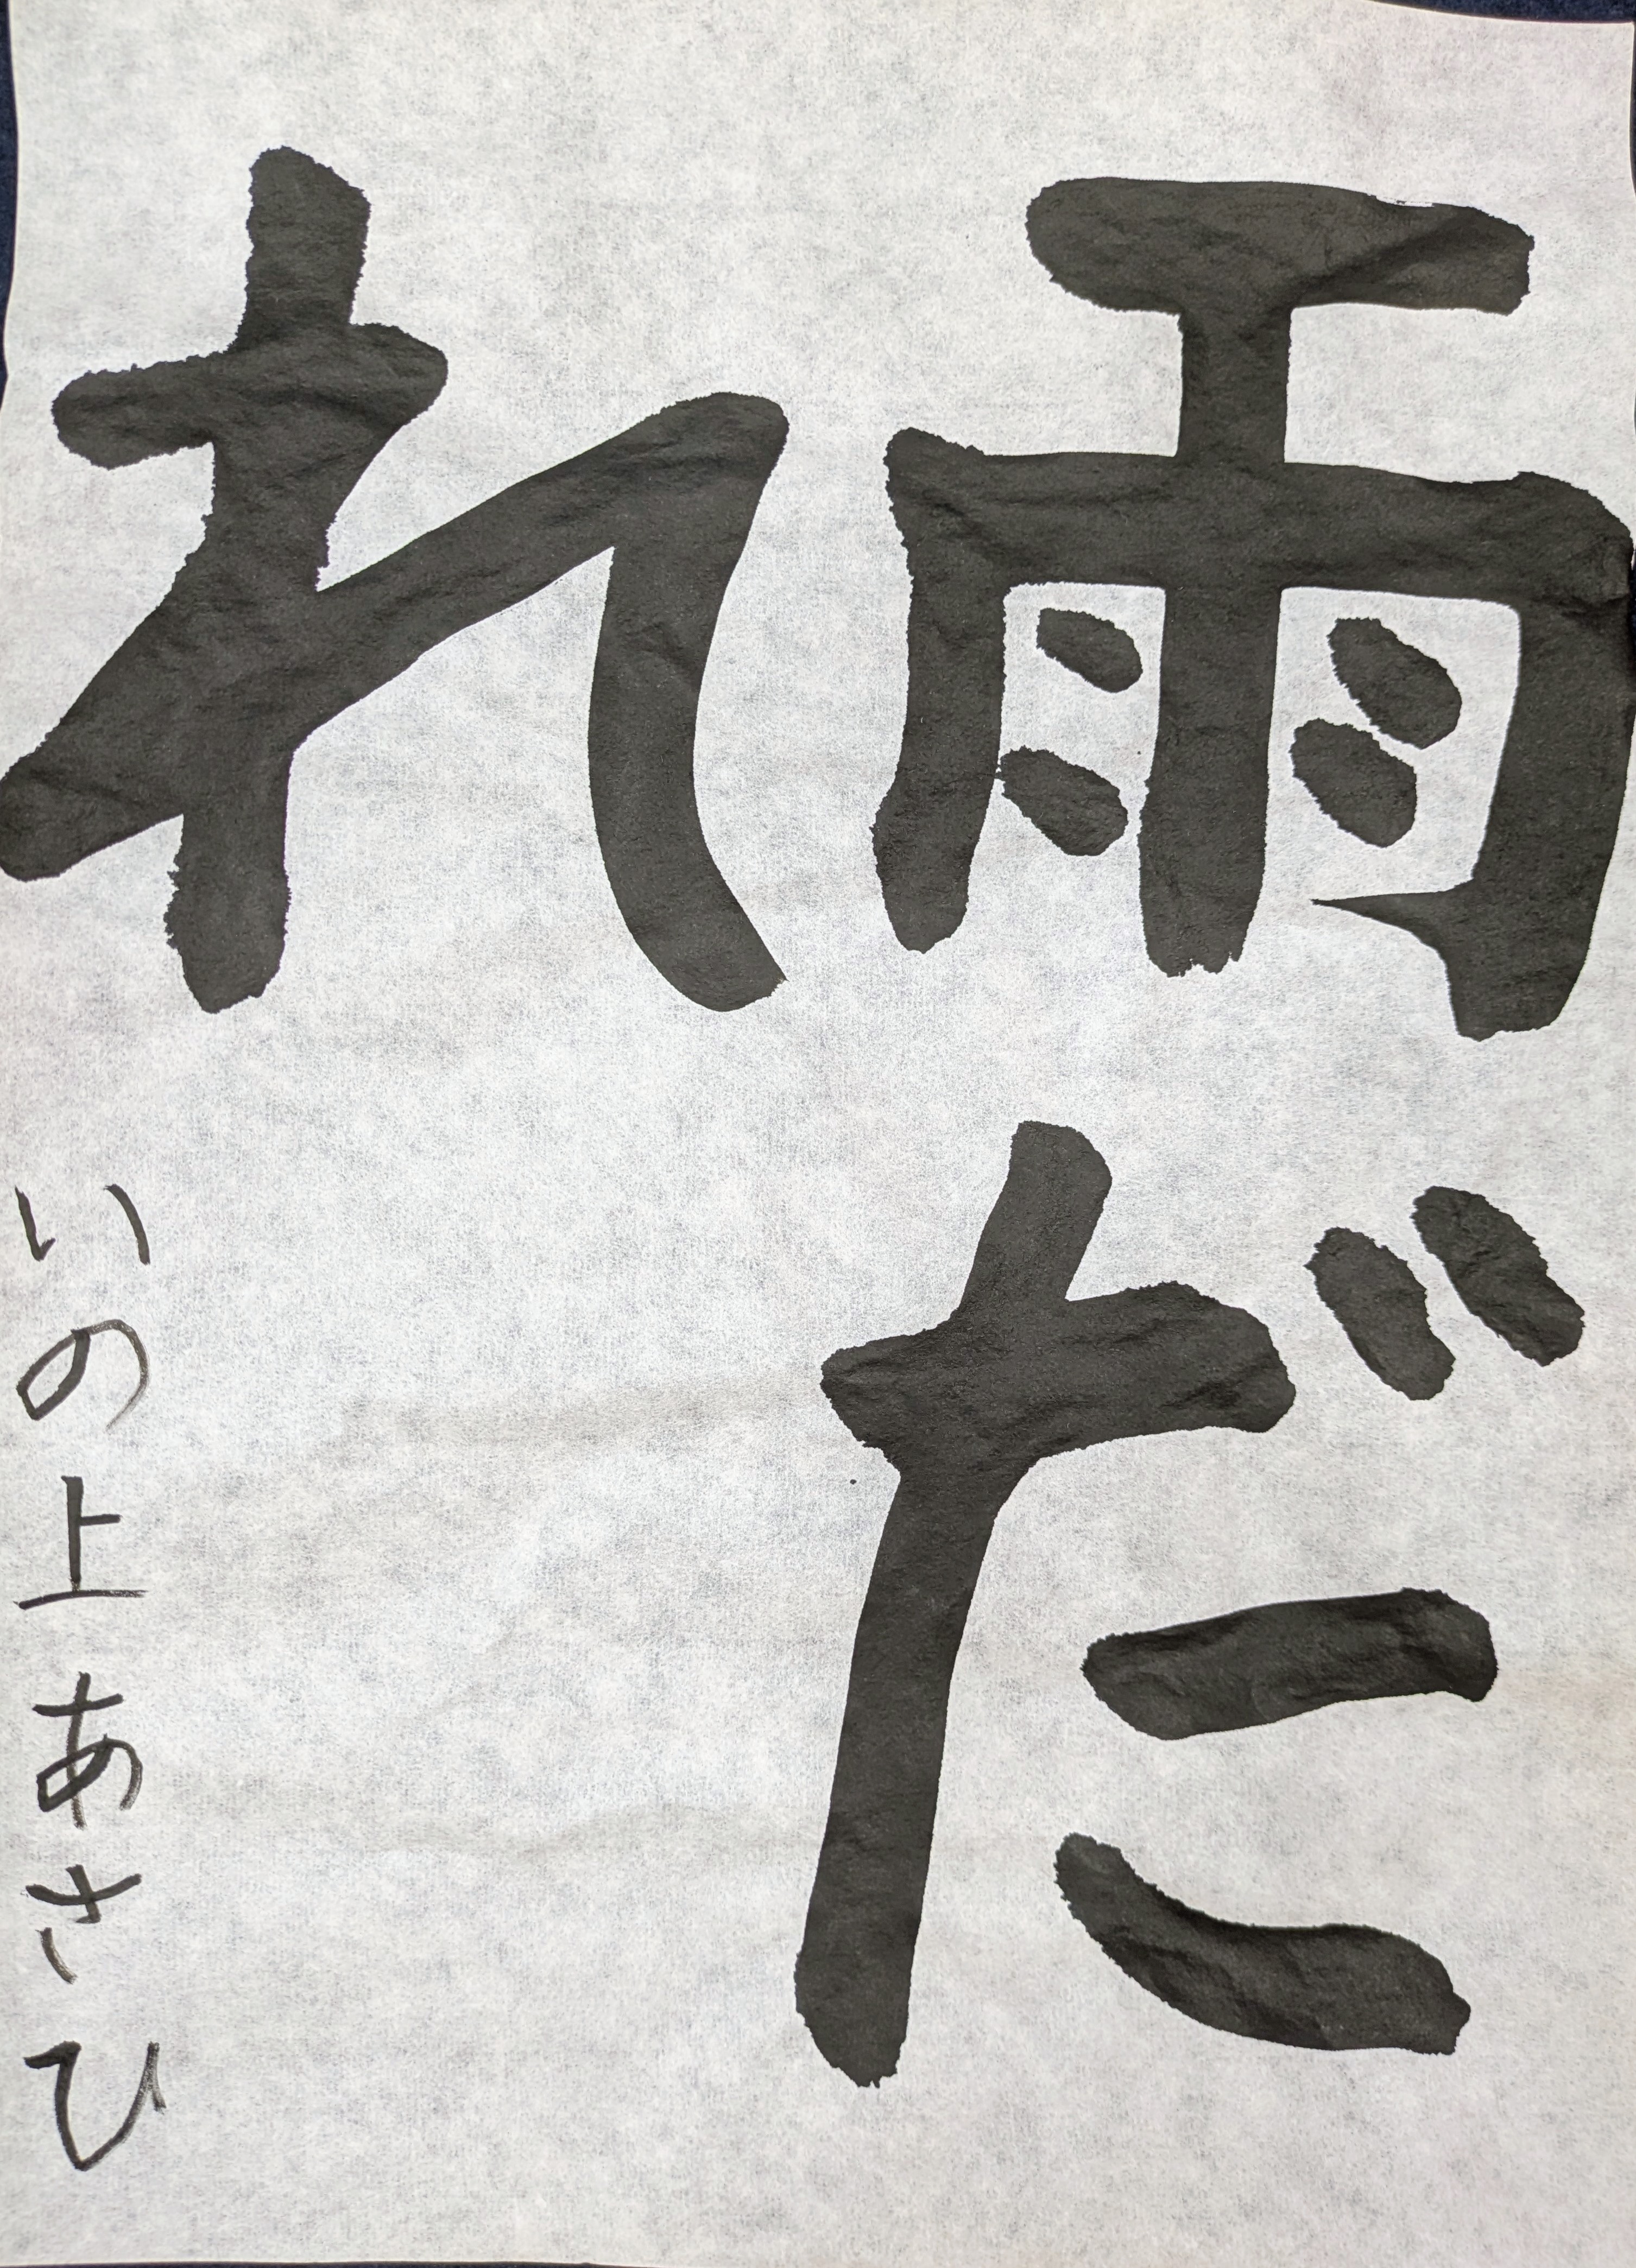 雨だ
れ
いの上あさひ